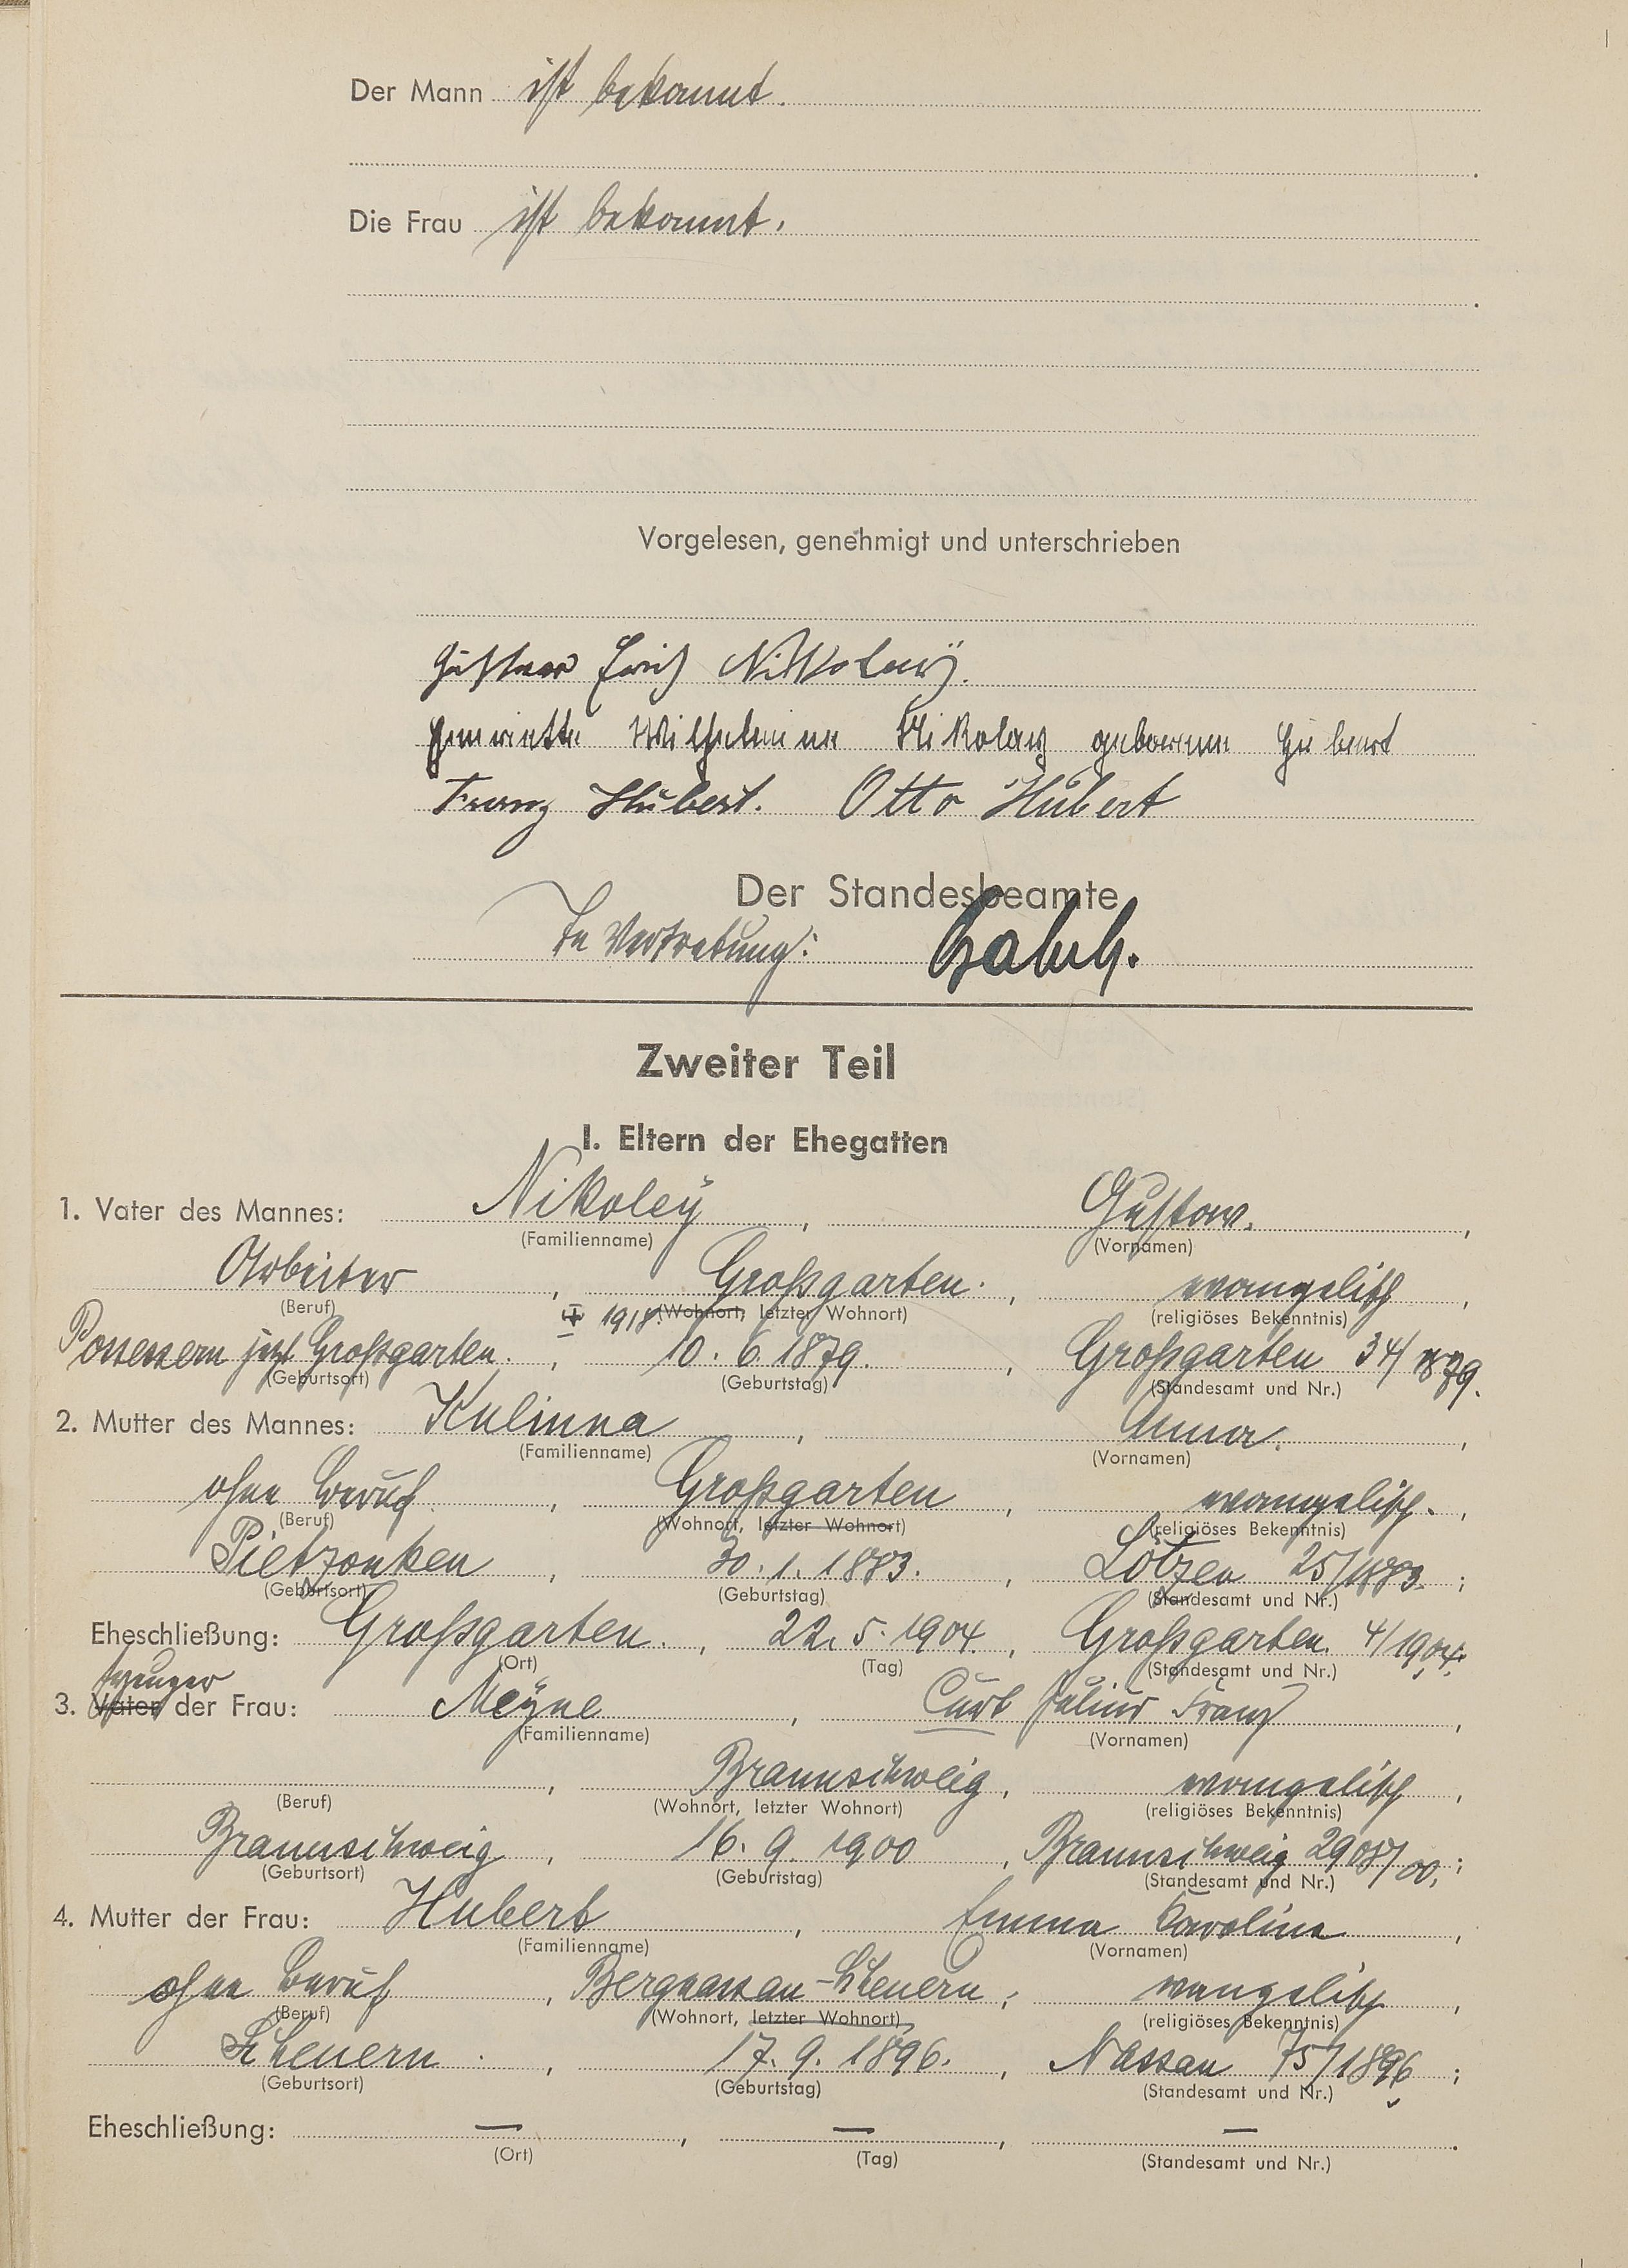 Der Mann ist bekannt.
Die Frau ist bekannt.
Vorgelesen, genehmigt und unterschrieben
Gustav Erich Nikoleÿ.
Henriette Wilhelmine Nikoley geborene Hubert
Franz Hubert. Otto Hubert
Der Standesbeamte
In Vertretung:
Zweiter Teil
I. Eltern der Ehegatten
1. Vater des Mannes: Nikoleÿ, Gustav.,
(Familienname) (Vornamen)
Arbeiter, Großgarten., evangelisch,
(Beruf) 1918. (Wohnort, letzter Wohnort) (religiöses Bekenntnis)
Possessern jetzt Großgarten., 10. 6. 1879., Großgarten 34/1879.
(Geburtsort) (Geburtstag) (Standesamt und Nr.)
2. Mutter des Mannes: Kulinna, Anna.,
(Familienname) (Vornamen)
ohne Beruf., Großgarten, evangelisch.,
(Beruf) (Wohnort, letzter Wohnort) (religiöses Bekenntnis)
Pietzonken, 30. 1. 1883., Lötzen 25/1883.;
(Geburtsort) (Geburtstag) (Standesamt und Nr.)
Eheschließung: Großgarten., 22. 5. 1904., Großgarten. 4/1904.
(Ort) (Tag) (Standesamt und Nr.)
Erzeuger
3. Vater der Frau: Meyne, Curt Julius Franz,
(Familienname) (Vornamen)
, Braunschweig, evangelisch,
(Beruf) (Wohnort, letzter Wohnort) (religiöses Bekenntnis)
Braunschweig, 16. 9. 1900, Braunschweig 2908/00.;
(Geburtsort) (Geburtstag) (Standesamt und Nr.)
4. Mutter der Frau: Hubert, Emma Caroline,
(Familienname) (Vornamen)
ohne Beruf, Bergnassau-Scheuern, evangelisch,
(Beruf) (Wohnort, letzter Wohnort) (religiöses Bekenntnis)
Scheuern., 17. 9. 1896., Nassau 75/1896;
(Geburtsort) (Geburtstag) (Standesamt und Nr.)
Eheschließung: —, —, —.
(Ort) (Tag) (Standesamt und Nr.)